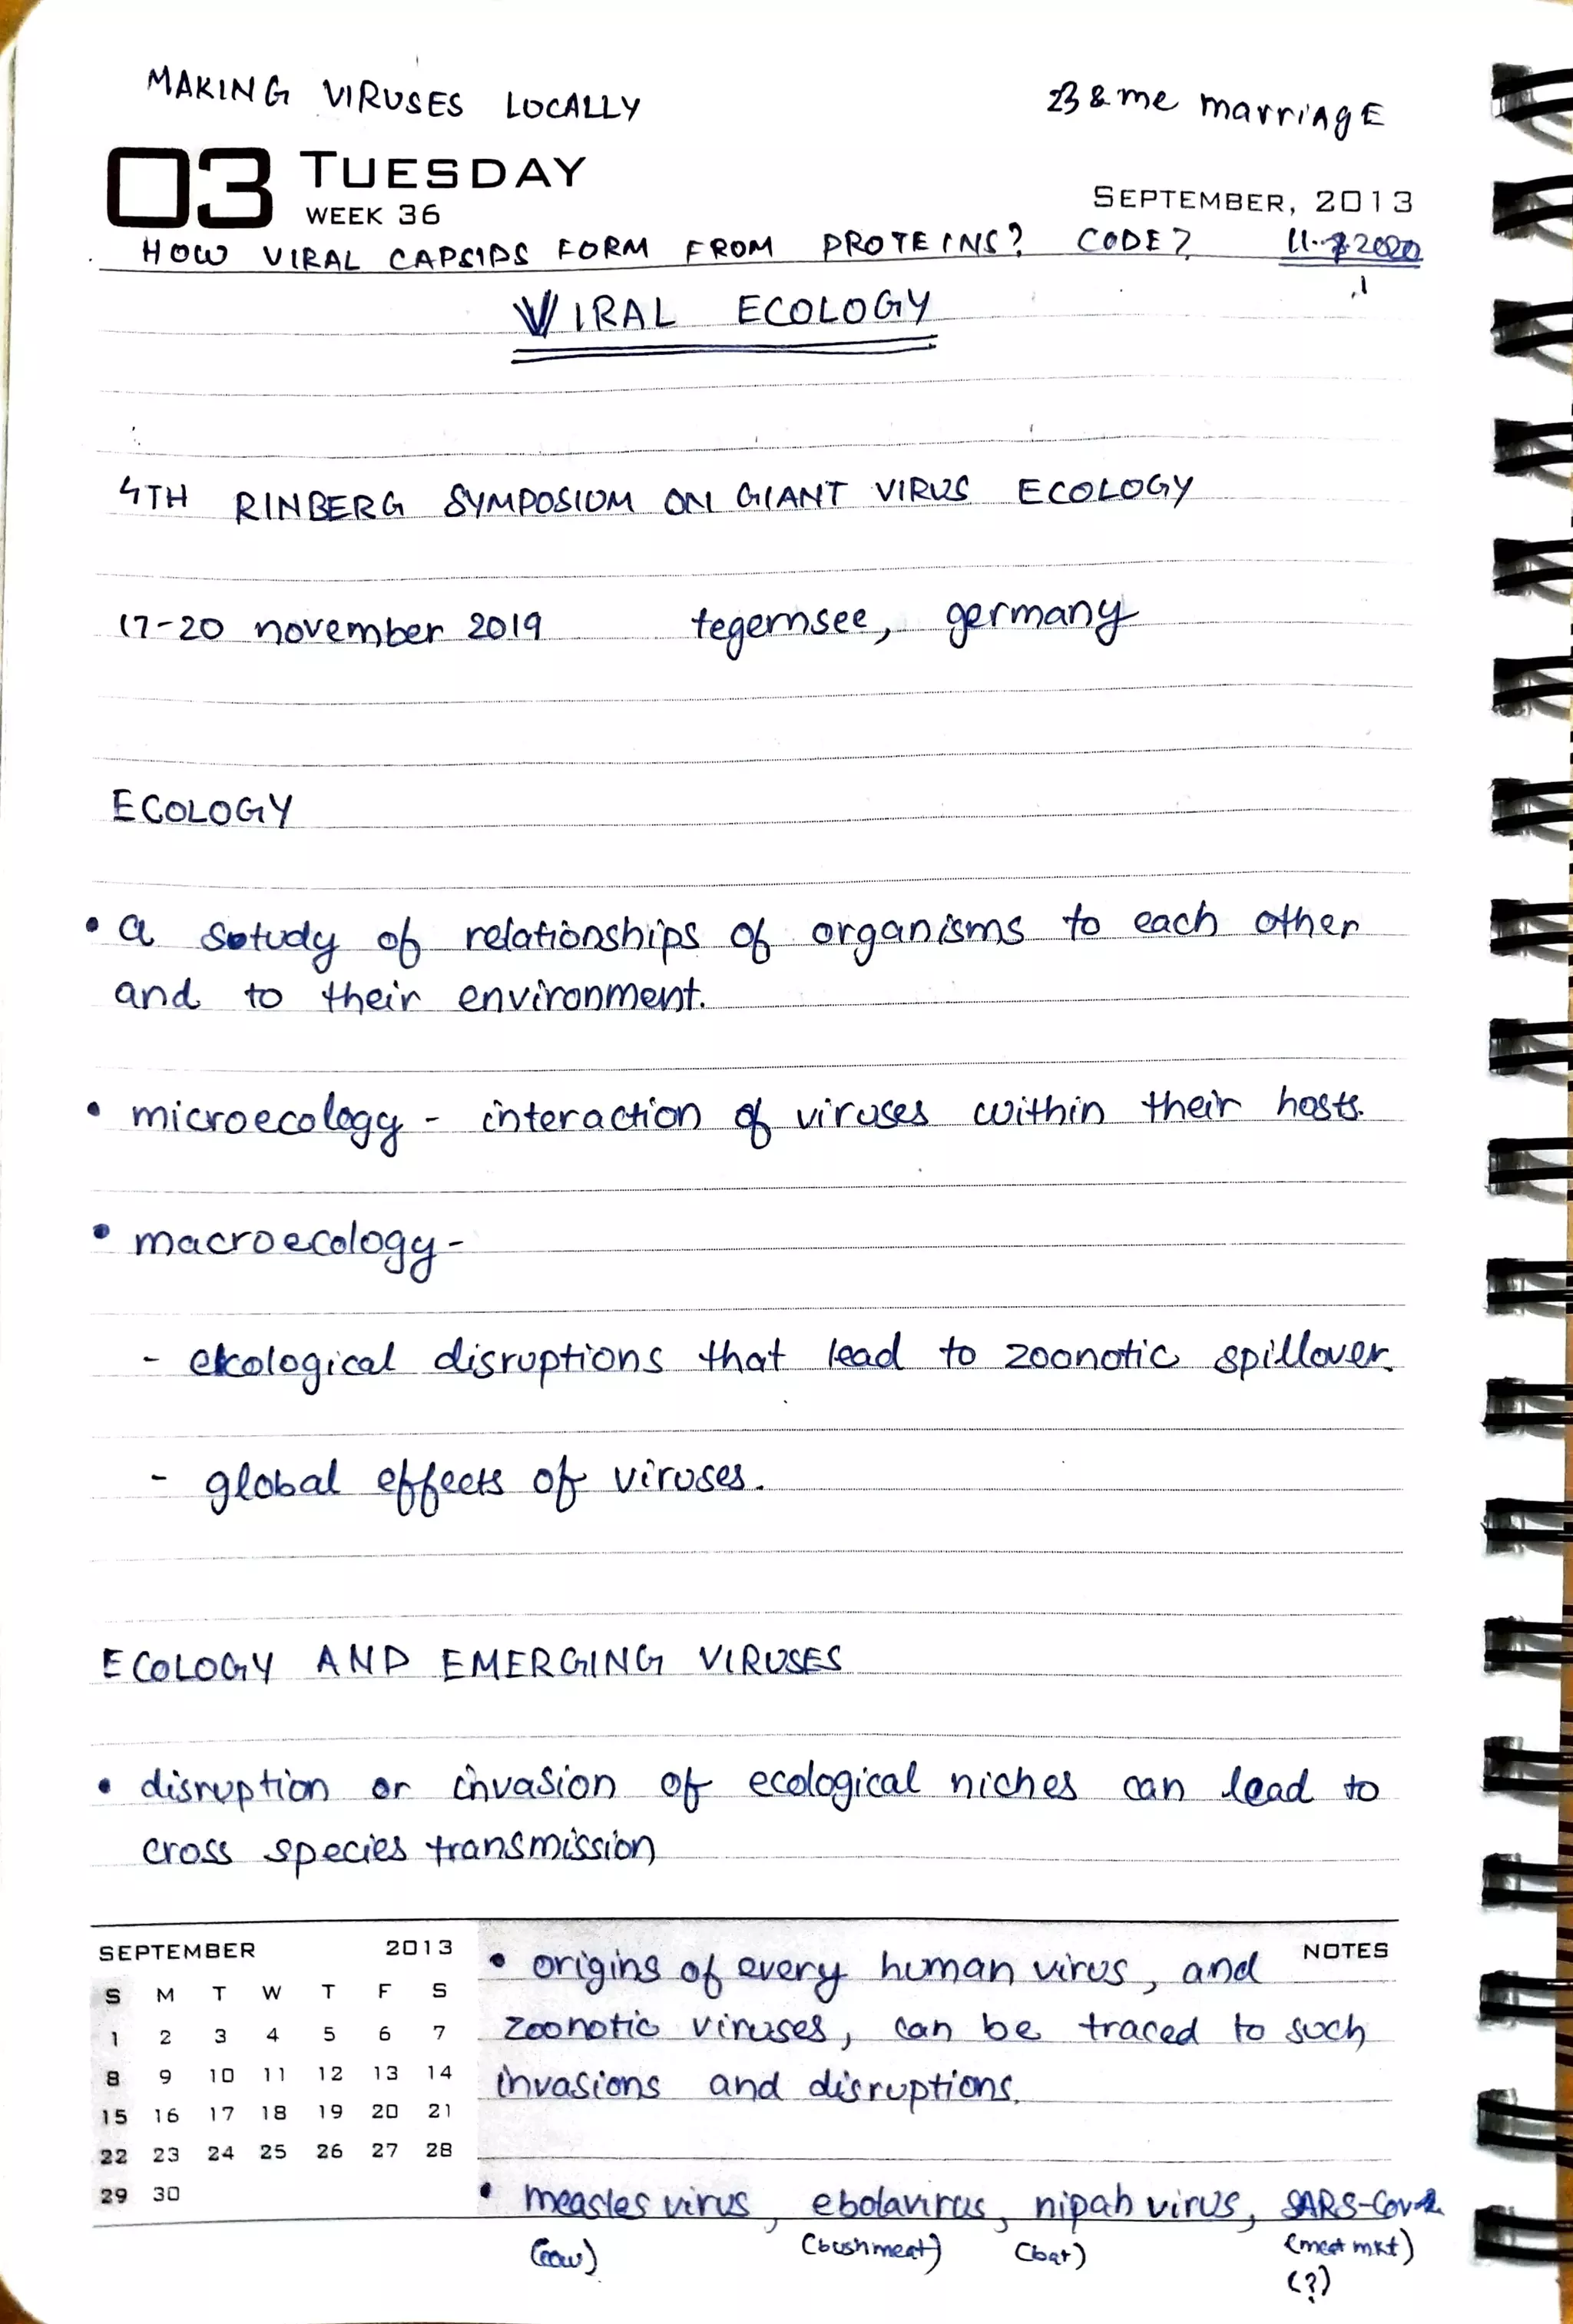 MAKING VIRUSES LOCALLY
23 & me marriagE
03 TUESDAY
WEEK 36
SEPTEMBER, 2013
HOW VIRAL CAPSIDS FORM FROM PROTEINS? CODE?
VIRAL ECOLOGY
4TH RINBERG SYMPOSIUM ON GIANT VIRUS ECOLOGY
17-20 november 2019 tegernsee, germany
ECOLOGY
• a study of relationships of organisms to each other
and to their environment.
• microecology - interaction of viruses within their hosts.
• macroecology -
- ecological disruptions that lead to zoonotic spillover.
- global effects of viruses.
ECOLOGY AND EMERGING VIRUSES
• disruption or invasion of ecological niches can lead to
cross species transmission
SEPTEMBER 2013
S M T W T F S
1 2 3 4 5 6 7
8 9 10 11 12 13 14
15 16 17 18 19 20 21
22 23 24 25 26 27 28
29 30
NOTES
• origins of every human virus, and
zoonotic viruses, can be traced to such
invasions and disruptions.
• measles virus, ebolavirus, nipah virus, SARS-CoV-2
(cow) (bushmeat) (bat) (meat mkt)
(?)